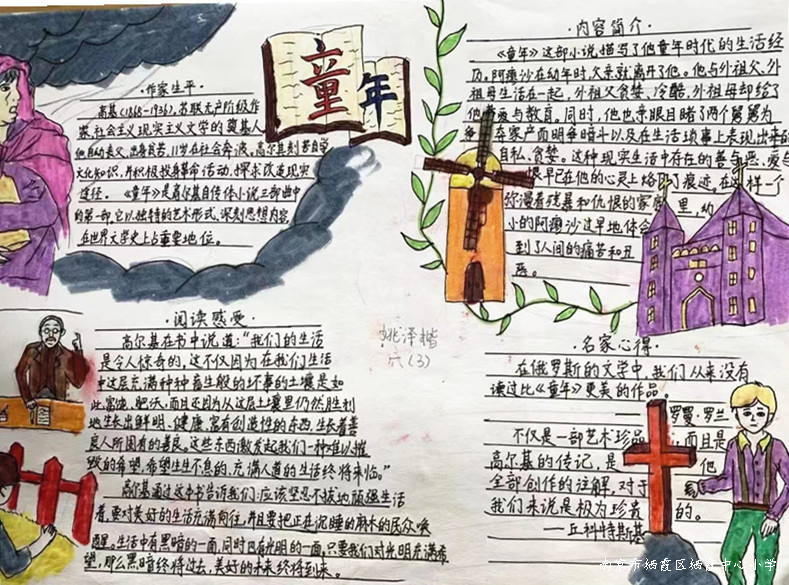 童年
·作家生平·
高基(1868-1936),苏联无产阶级作
家,社会主义现实主义文学的奠基人
他自幼丧父,出身贫苦,11岁在社会奔波,高尔基刻苦自学
文化知识,并积极投身革命活动,探求改造现实
途径。《童年》是高尔基自传体小说三部曲中
的第一部,它以独特的艺术形式,深刻思想内容,
在世界文学史上占重要地位。
·内容简介·
《童年》这部小说描写了他童年时代的生活经
历。阿廖沙在幼年时,父亲就离开了他。他与外祖父、外
祖母生活在一起,外祖父贪婪、冷酷,外祖母却给了
他 爱与教育。同时,他也亲眼目睹了两个舅舅为
争 家产而明争暗斗以及在生活琐事上表现出来的
自私、贪婪。这种现实生活中存在的善与恶、爱与
恨早已在他的心灵上烙 了痕迹,在这样一个
弥漫着残暴和仇恨的家 里,幼
小的阿廖沙过早地体会
到了人间的痛苦和丑
恶。
·阅读感受·
高尔基在书中说道:“我们的生活
是令人惊奇的,这不仅因为在我们生活
中这层充满种种畜生般的坏事的土壤是如
此富饶、肥沃,而且还因为从这层土壤里仍然胜利
地生长出鲜明、健康、富有创造性的东西,生长着善
良人所固有的善良。这些东西激发起我们一种难以摧
毁的希望,希望生生不息的、充满人道的生活终将来临。”
高尔基通过这本书告诉我们:应该坚忍不拔地顽强生活
着,要对美好的生活充满向往,并且要把正在沉睡的麻木的民众唤
醒。生活中有黑暗的一面,同时也有光明的一面,只要我们对光明充满希
望,那么黑暗终将过去,美好的未来终将到来。
姚泽楷
六(3)
·名家心得·
在俄罗斯的文学中,我们从来没有
读过比《童年》更美的作品。
——罗曼·罗兰
不仅是一部艺术珍品 而且是
高尔基的传记,是 他
全部创作的注解,对于
我们来说是极为珍贵 的。
——丘科特斯基
南京市栖霞区栖霞中心小学